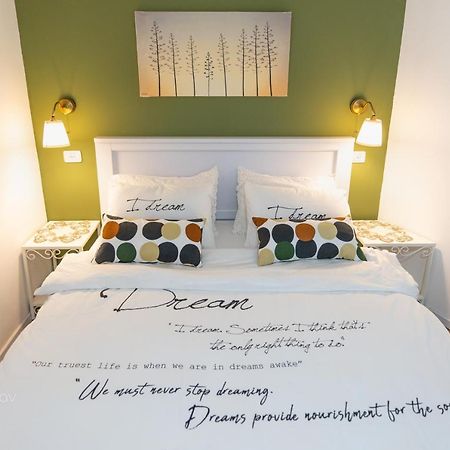 I dream
I dream
"Dream
"I dream. Sometimes I think that's
the only right thing to do."
"Our truest life is when we are in dreams awake"
"We must never stop dreaming.
Dreams provide nourishment for the so
av